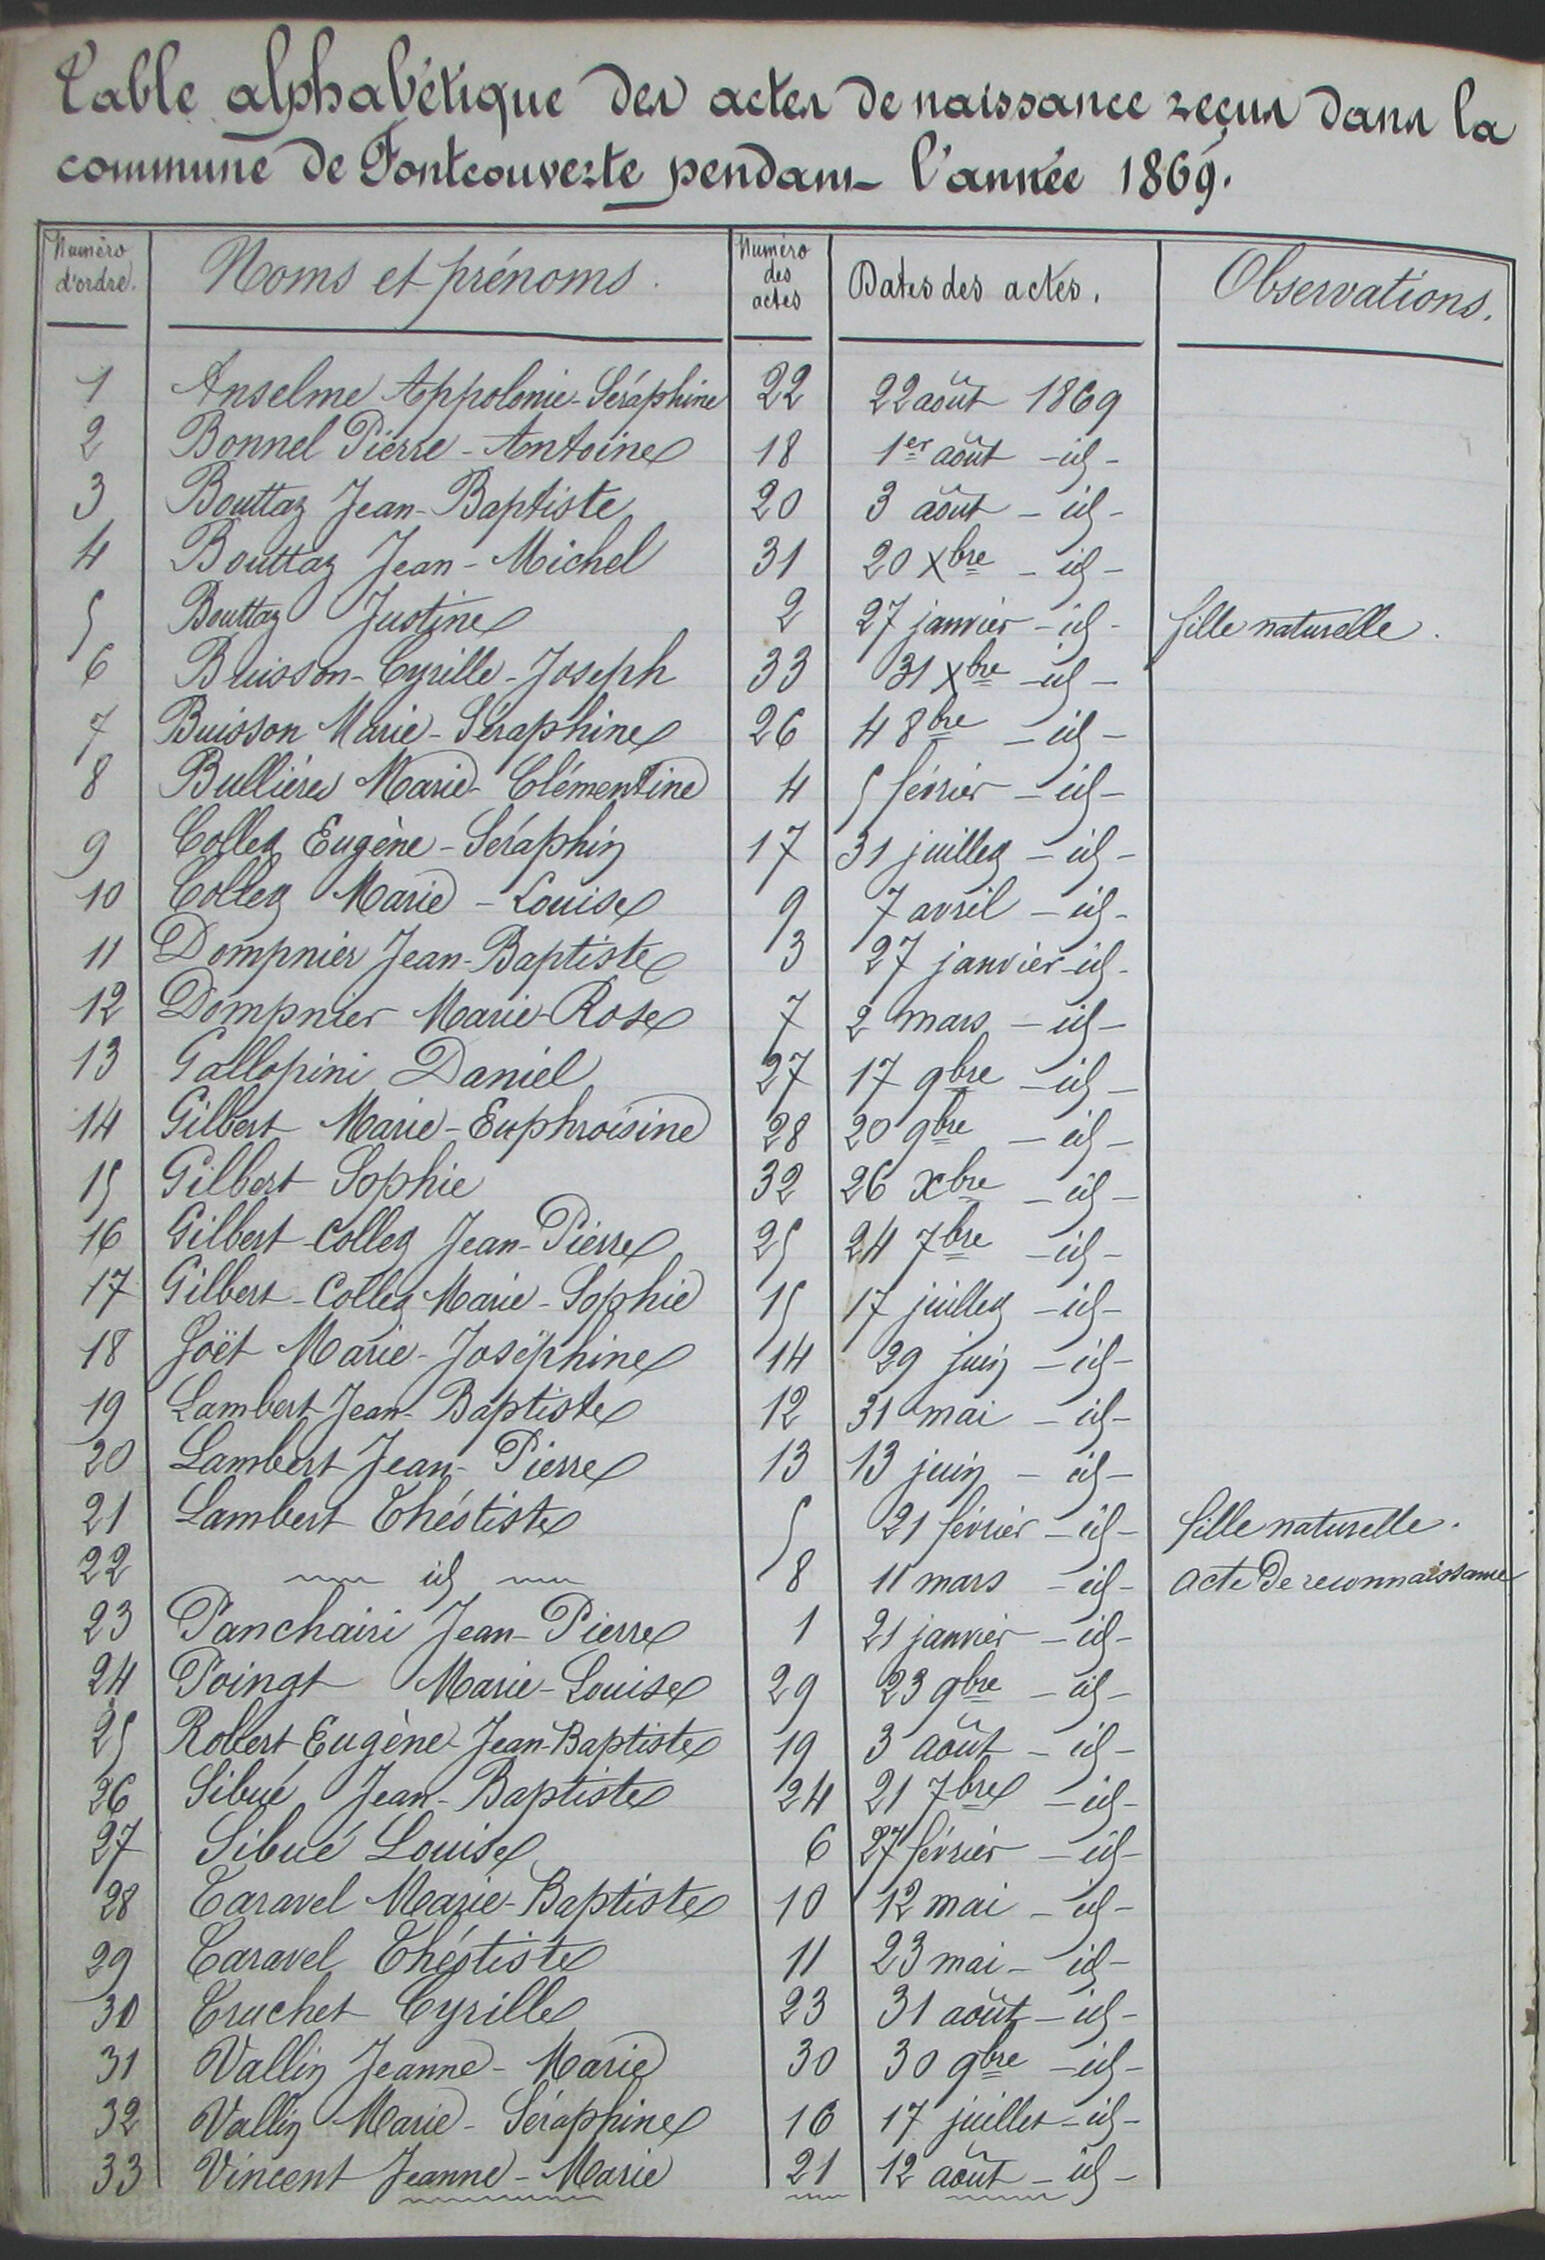 Table alphabétique des actes de naissance reçus dans la
commune de Fontcouverte pendant l'année 1869.
Numéro d'ordre. Noms et prénoms. Numéro des actes Dates des actes. Observations.
1 Anselme Appolonie-Séraphine 22 22 août 1869
2 Bonnel Pierre-Antoine 18 1er août - id -
3 Bouttaz Jean-Baptiste 20 3 août - id -
4 Bouttaz Jean-Michel 31 20 Xbre - id -
5 Bouttaz Justine 2 27 janvier - id - fille naturelle.
6 Buisson-Cyrille-Joseph 33 31 Xbre - id -
7 Buisson Marie-Séraphine 26 4 8bre - id -
8 Bulliére Marie-Clémentine 4 5 février - id -
9 Collet Eugène-Séraphin 17 31 juillet - id -
10 Collet Marie-Louise 9 7 avril - id -
11 Dompnier Jean-Baptiste 3 27 janvier - id -
12 Dompnier Marie-Rose 7 2 mars - id -
13 Gallopini Daniel 27 17 9bre - id -
14 Gilbert Marie-Euphroisine 28 20 9bre - id -
15 Gilbert Sophie 32 26 Xbre - id -
16 Gilbert-Collet Jean-Pierre 25 24 7bre - id -
17 Gilbert-Collet Marie-Sophie 15 17 juillet - id -
18 Joët Marie-Joséphine 14 29 juin - id -
19 Lambert Jean-Baptiste 12 31 mai - id -
20 Lambert Jean-Pierre 13 13 juin - id -
21 Lambert Théotiste 5 21 février - id - fille naturelle.
22 id 8 11 mars - id - acte de reconnaissance
23 Panchairi Jean-Pierre 1 21 janvier - id -
24 Poingt Marie-Louise 29 23 9bre - id -
25 Robert Eugène-Jean-Baptiste 19 3 août - id -
26 Sibué Jean-Baptiste 24 21 7bre - id -
27 Sibué Louise 6 27 février - id -
28 Taravel Marie-Baptiste 10 12 mai - id -
29 Taravel Théotiste 11 23 mai - id -
30 Truchet Cyrille 23 31 août - id -
31 Vallin Jeanne-Marie 30 30 9bre - id -
32 Vallin Marie-Séraphine 16 17 juillet - id -
33 Vincent Jeanne-Marie 21 12 août - id -